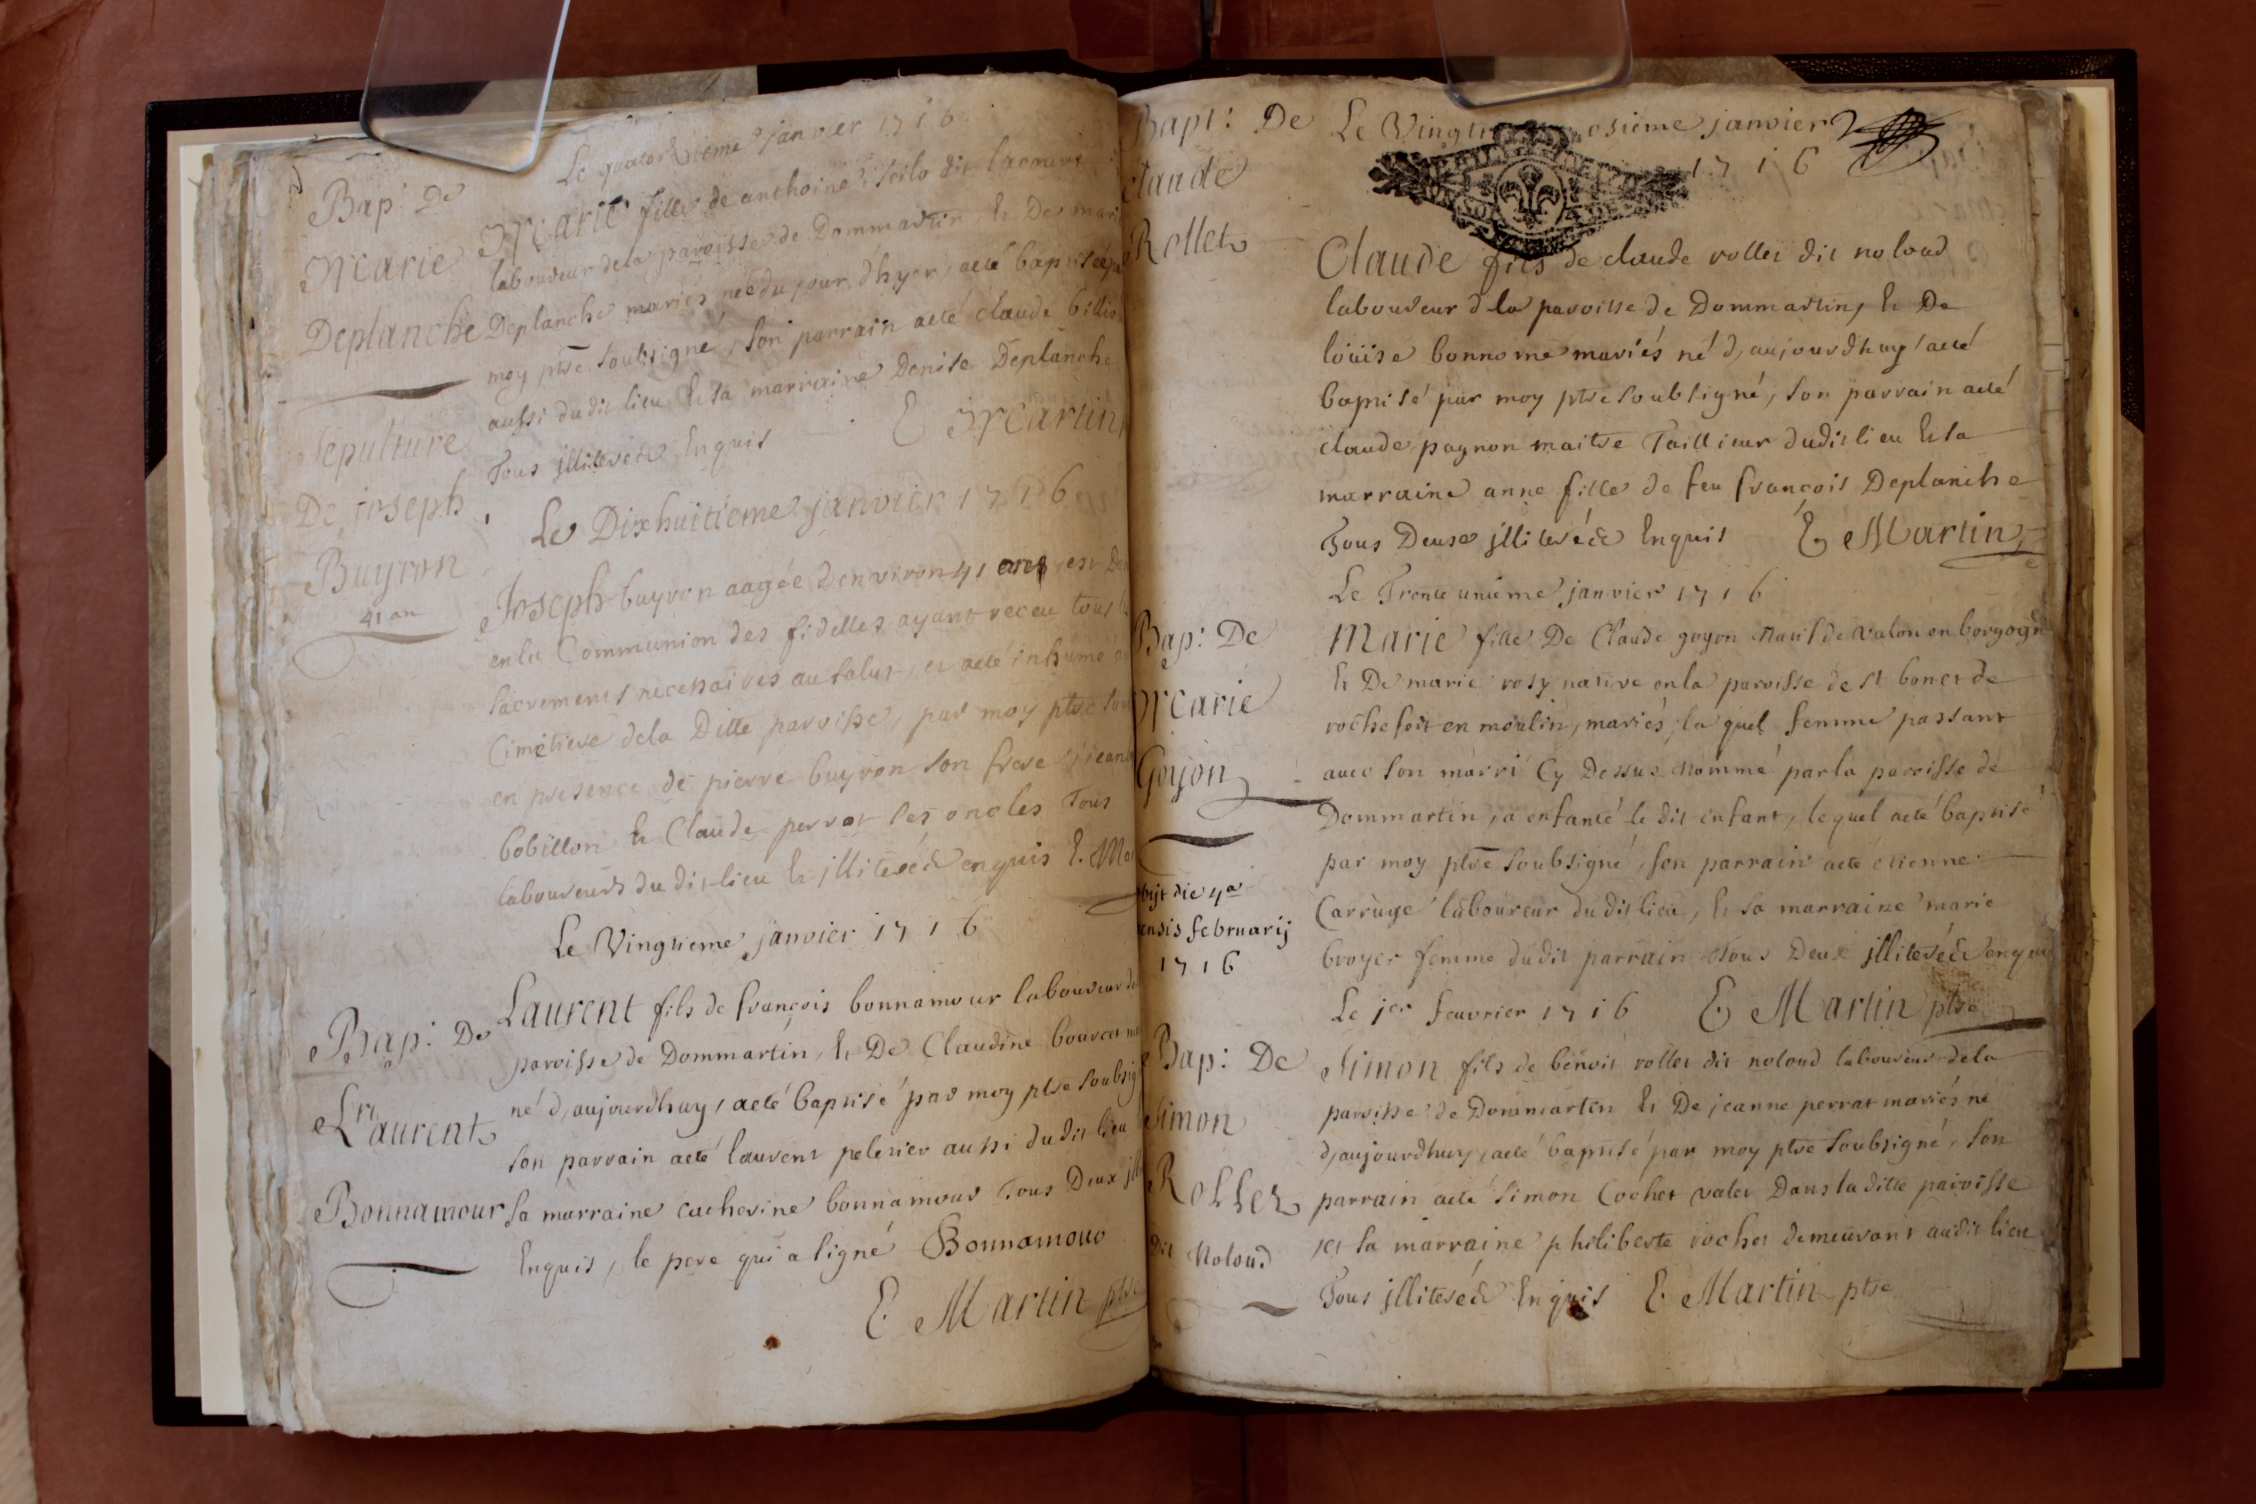 Bap: De
Marie
Deplanche
Sepulture
De joseph
Buyron
41 an
Bap: De
Laurent
Bonnamour
Le quatorzieme janvier 1716
Marie fille de anthoine dit
laboureur dela paroisse de Dommartin et De marie
Deplanche mariés née du jour d'hyer, acté baptisée par
moy ptre soubsigné, son parrain acté claude
aussi dudit lieu et sa marraine Denise Deplanche
Tous jlliteré &c Enquis E Martin
Le Dixhuitieme janvier 1716
Joseph buyron aagée denviron 41 ans est
en la Communion des fidelles ayant receu tous
sacrements necessaires au salut, et acté inhumé
Cimetiere dela Ditte paroisse, par moy ptre
en presence de pierre buyron son frere
bobillon et Claude perrat ses oncles Tous
laboureurs du dit lieu et jlliteré &c enquis E. Mar
Le Vingtieme janvier 1716
Laurent fils de françois bonnamour laboureur de
paroisse de Dommartin, et De Claudine
né d'aujourdhuy, acté baptisé par moy ptre soubsig
son parrain acté laurent peletier aussi du dit lieu
sa marraine catherine bonnamour Tous Deux jll
Enquis, le pere qui a signé Bonnamour
E. Martin ptre
Bapt: De
Claude
Rollet
Bap: De
Marie
Goyon
obijt die 4a
mensis februarij
1716
Bap: De
Simon
Rollet
Dit Noloud
Le Vingt osieme janvier
1716
Claude fils de claude rollet dit noloud
laboureur d la paroisse de Dommartin, et De
loüise bonnome mariés né d'aujourdhuy acté
baptisé par moy ptre soubsigné, son parrain acté
claude pagnon maitre Taillieur dudit lieu et sa
marraine anne fille de feu françois Deplanche
Tous Deux jlliteré &c Enquis E Martin
Le Trente unieme janvier 1716
Marie fille De Claude goyon Natif de valon en borgogne
et De marie rosy native en la paroisse de st bonet de
rochefort en moulin, mariés, la quel femme passant
avec son marri Cy Dessus Nommé par la paroisse de
Dommartin, a enfanté le dit enfant, lequel acté baptisé
par moy ptre soubsigné, son parrain acté etienne
Carruge laboureur du dit lieu, et sa marraine marie
broyer femme du dit parrain Tous Deux jlliteré &c enquis
Le jer feuvrier 1716 E Martin ptre
Simon fils de benoit rollet dit noloud laboureur dela
paroisse de Dommarten et De jeanne perrat mariés né
d'aujourdhuy, acté baptisé par moy ptre soubsigné, son
parrain acté simon Cochet valet Dans la ditte paroisse
et sa marraine philiberte rochet demeurant audit lieu
Tous jlliteré &c Enquis E. Martin ptre